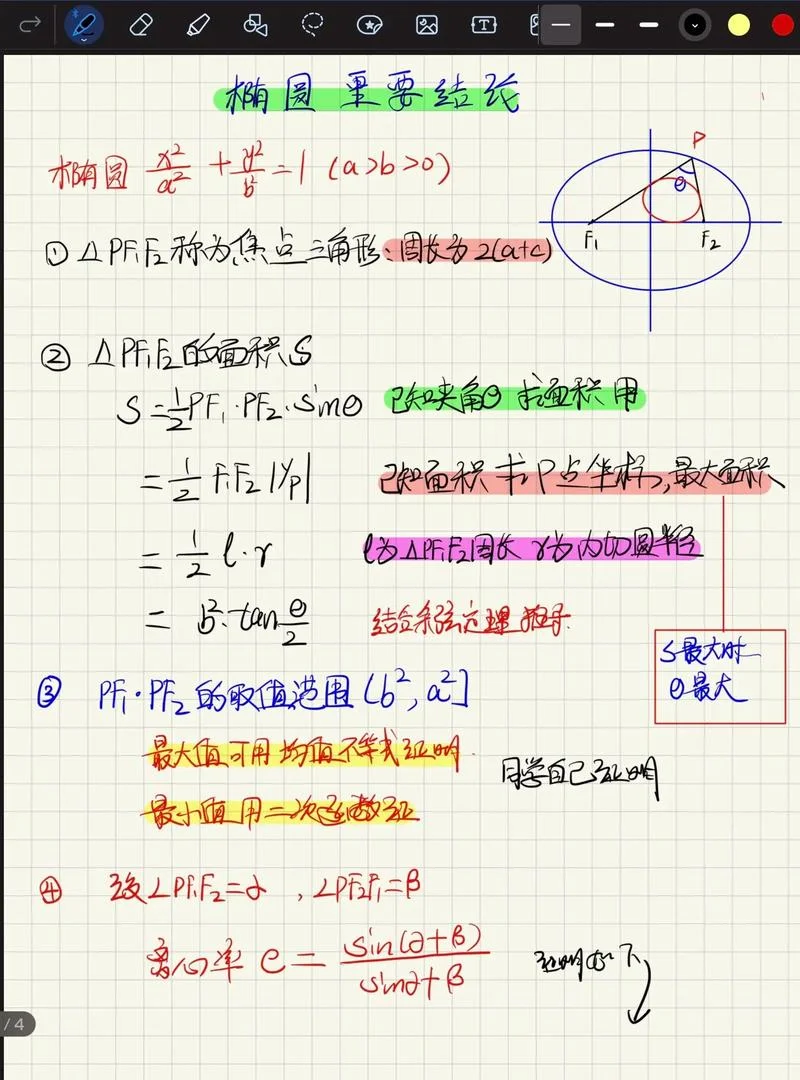 椭圆 重要结论
椭圆 x²/a² + y²/b² = 1 (a>b>0)
P
θ
F₁
F₂
① △PF₁F₂称为焦点三角形:周长为2(a+c)
② △PF₁F₂的面积S
S=½PF₁·PF₂·sinθ 已知夹角θ 求面积用
=½F₁F₂|yₚ| 已知面积 求P点坐标,最大面积
=½l·r l为△PF₁F₂周长 r为内切圆半径
= b²·tanθ/2 结合余弦定理推导.
S最大时
θ最大
③ PF₁·PF₂的取值范围(b²,a²]
最大值可用均值不等式证明.
同学自己证明
最小值用二次函数证
④ 设∠PF₁F₂=α,∠PF₂F₁=β
离心率 e = sin(α+β)/sinα+β 证明如下
/4